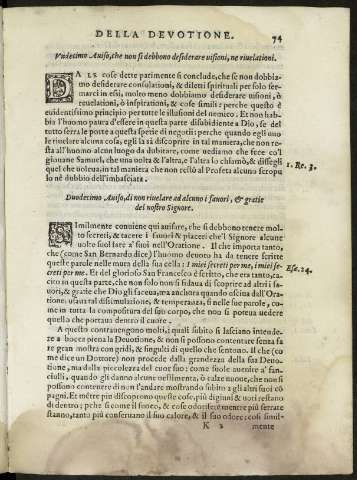 DELLA DEVOTIONE. 74
Vndecimo Auiso, che non si debbono desiderare uisioni, ne riuelationi.
DALLE cose dette parimente si conclude, che se non dobbia-
mo desiderare consolationi, & diletti spirituali per solo fer-
marci in essi, molto meno dobbiamo desiderare uisioni, ò
reuelationi, ò inspirationi, & cose simili: perche questo è
euidentissimo principio per tutte le illusioni del nemico. Et non hab-
bia l'huomo paura d'essere in questa parte disubidiente a Dio, se del
tutto serra le porte a questa sperie di negotii: perche quando egli uuo
le riuelare alcuna cosa, egli la sà discoprire in tal maniera, che non re-
sta all'huomo alcun luogo da dubitare, come uediamo che fece co'l
giouane Samuel, che una uolta & l'altra, e l'altra lo chiamò, & dissegli
quel che uoleua, in tal maniera che non restò al Profeta alcuno scropu
lo nè dubbio dell'imbasciata.
1. Re. 3.
Duodecimo Auiso, di non riuelare ad alcuno i fauori, & gratie
del nostro Signore.
SImilmente conuiene qui auisare, che si debbono tenere mol-
to secreti, & tacere i fauori & piaceri che'l Signore alcune
uolte suol fare a' suoi nell'Oratione. Il che importa tanto,
che (come San Bernardo dice) l'huomo deuoto ha da tenere scritte
queste parole nelle mura della sua cella: I miei secreti per me, i miei se
creti per me. Et del glorioso San Francesco è scritto, che era tanto, ca-
cito in questa parte, che non solo non si fidaua di scoprire ad altri i fa-
uori, & gratie che Dio gli faceua, ma anchora quando usciua dall'Ora-
tione, usaua tal dissimulatione, & temperanza, sì nelle sue parole, co-
me in tutta la compositura del suo corpo, che non si poteua uedere
quello che portaua dentro il cuore.
Esa. 24.
A questo contrauengono molti, i quali subito si lasciano intende-
re a bocca piena la Deuotione, & non si possono contentare senza fa
re gran mostra con gridi, & singulti di quello che sentono. Il che (co
me dice un Dottore) non procede dalla grandezza della sua Deuo-
tione, ma dalla piccolezza del cuor suo: come suole auenire a' fan-
ciulli, quando gli danno alcune uestimenta, ò calze nuoue, che non si
possono contenere di non l'andare mostrando subito a gli altri suoi cō
pagni. Et mētre piu discoprono queste cose, più digiuni & uoti restano
di dentro; pche si come il fuoco, & cose odorifere mentre più serrate
stanno, tanto più conseruano il suo calore, & il suo odore: così simil-
K 2 mente